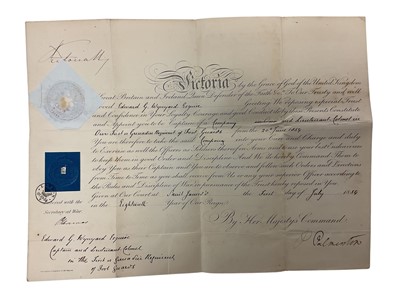 Victoria R
Victoria by the Grace of God of the United Kingdom
of Great Britain and Ireland Queen Defender of the Faith &c. To Our Trusty and well
beloved Edward G Wynyard Esquire Greeting We reposing especial Trust
and Confidence in your Loyalty Courage and good Conduct do by these Presents Constitute
and Appoint you to be Captain of a Company and Lieutenant Colonel in
Our First or Grenadier Regiment of Foot Guards from the 20th June 1854
You are therefore to take the said Company into your Care and Charge and duly
to Exercise as well the Officers as Soldiers thereof in Arms and to use your best Endeavours
to keep them in good Order and Discipline And We do hereby Command Them to
obey you as their Captain and you to observe and follow such Orders and Directions
from Time to Time as you shall receive from Us or any your superior Officer according to
the Rules and Discipline of War in pursuance of the Trust hereby reposed in You
Given at Our Court at Saint James's the First day of July 1854
in the Eighteenth Year of Our Reign
By Her Majesty's Command
Palmerston
Entered with the
Secretary at War
Edward G Wynyard Esquire
Captain and Lieutenant Colonel
in the First or Grenadier Regiment
of Foot Guards